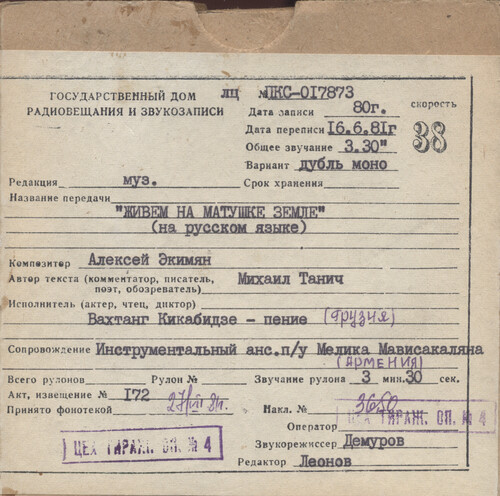 ГОСУДАРСТВЕННЫЙ ДОМ
РАДИОВЕЩАНИЯ И ЗВУКОЗАПИСИ
ЛЦ № ПКС-017873
Дата записи 80г.
скорость
38
Дата переписи 16.6.81г
Общее звучание 3.30"
Вариант дубль моно
Редакция муз. Срок хранения
Название передачи
"ЖИВЕМ НА МАТУШКЕ ЗЕМЛЕ"
(на русском языке)
Композитор Алексей Экимян
Автор текста (комментатор, писатель, Михаил Танич
поэт, обозреватель)
Исполнитель (актер, чтец, диктор)
Вахтанг Кикабидзе - пение (Грузия)
Сопровождение Инструментальный анс.п/у Мелика Мависакаляна
(АРМЕНИЯ)
Всего рулонов Рулон № Звучание рулона 3 мин.30 сек.
Акт, извещение № 172
Принято фонотекой Накл. № 3650
Оператор
ЦЕХ ТИРАЖ. ОП. № 4
ЦЕХ ТИРАЖ. ОП. № 4
Звукорежиссер Демуров
Редактор Леонов